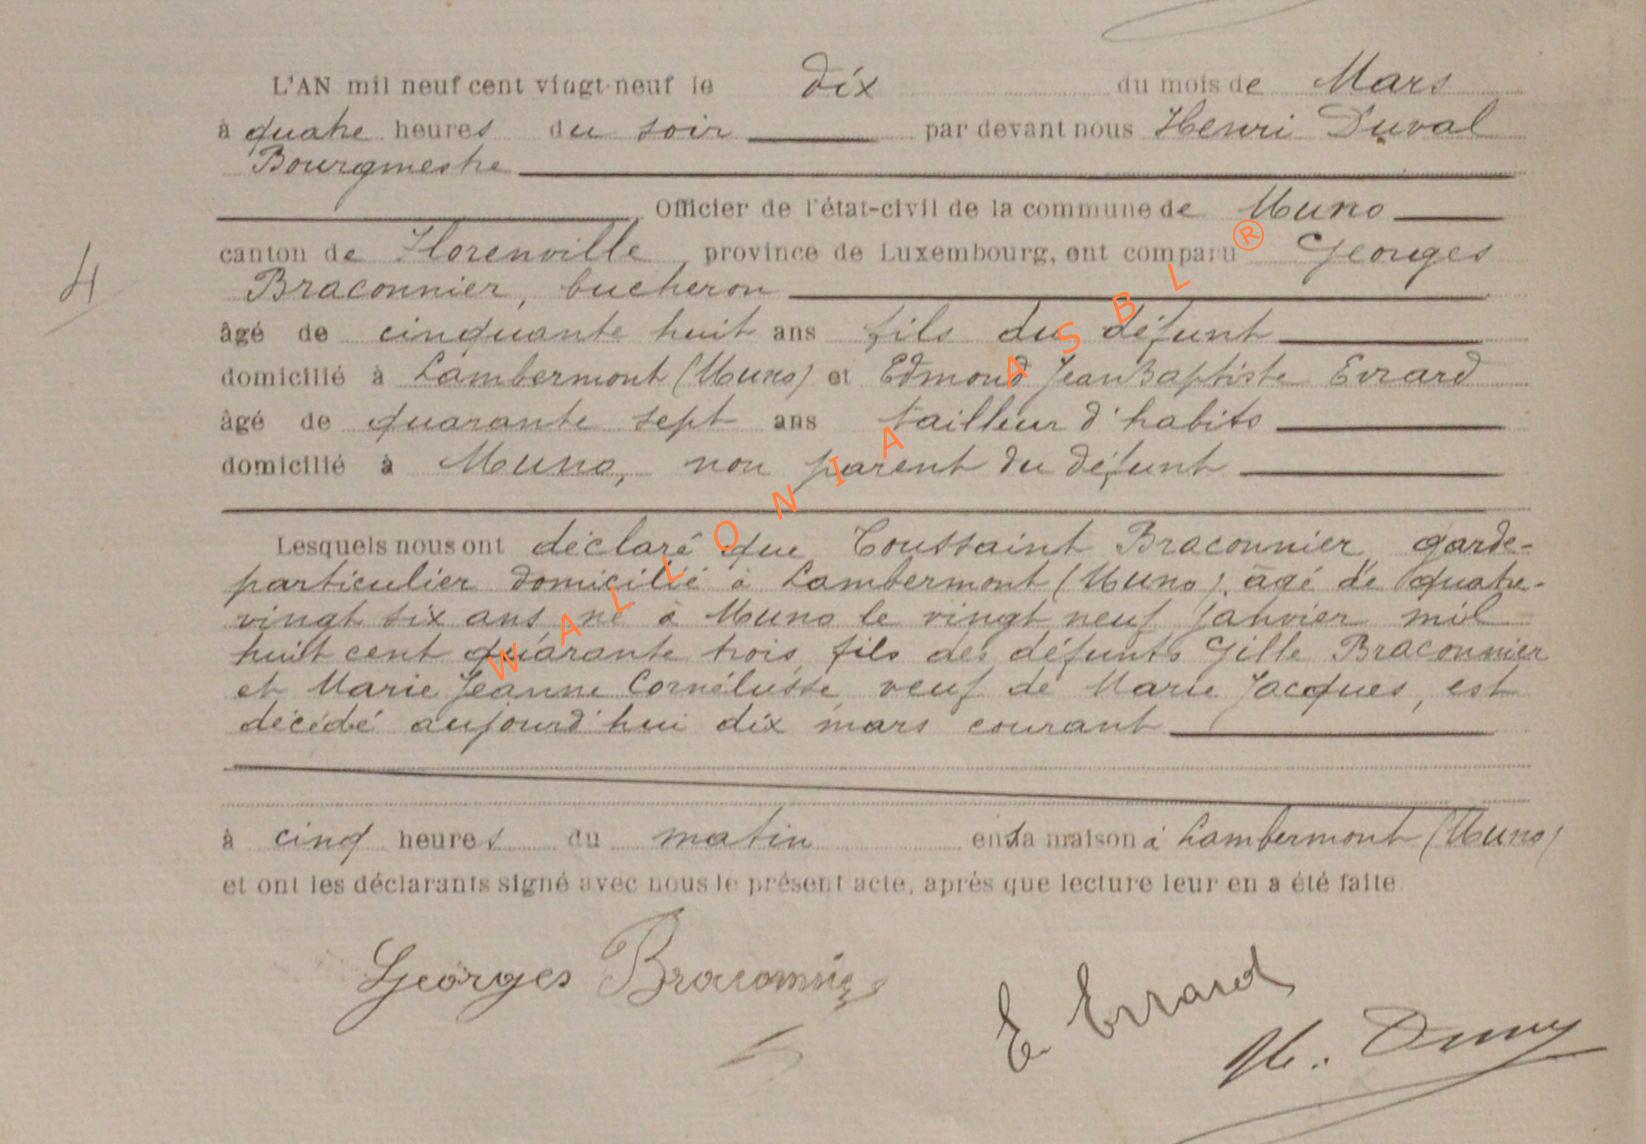 L'AN mil neuf cent vingt-neuf le dix du mois de Mars
à quatre heures du soir par devant nous Henri Duval
Bourgmestre
Officier de l'état-civil de la commune de Muno
canton de Florenville, province de Luxembourg, ont comparu Georges
4
Braconnier, bucheron
âgé de cinquante huit ans fils du défunt
domicilié à Lambermont (Muno) et Edmond Jean Baptiste Evrard
âgé de quarante sept ans tailleur d'habits
domicilié à Muno, non parent du défunt
Lesquels nous ont déclaré que Toussaint Braconnier, garde-
particulier domicilié à Lambermont (Muno), âgé de quatre-
vingt six ans né à Muno le vingt neuf janvier mil
huit cent quarante trois, fils des défunts Gille Braconnier
et Marie Jeanne Cornélusse, veuf de Marie Jacques, est
décédé aujourd'hui dix mars courant
à cinq heures du matin en sa maison à Lambermont (Muno)
et ont les déclarants signé avec nous le présent acte, après que lecture leur en a été faite.
Georges Braconnier
E. Evrard
H. Duval
WALLONIA ASBL ®